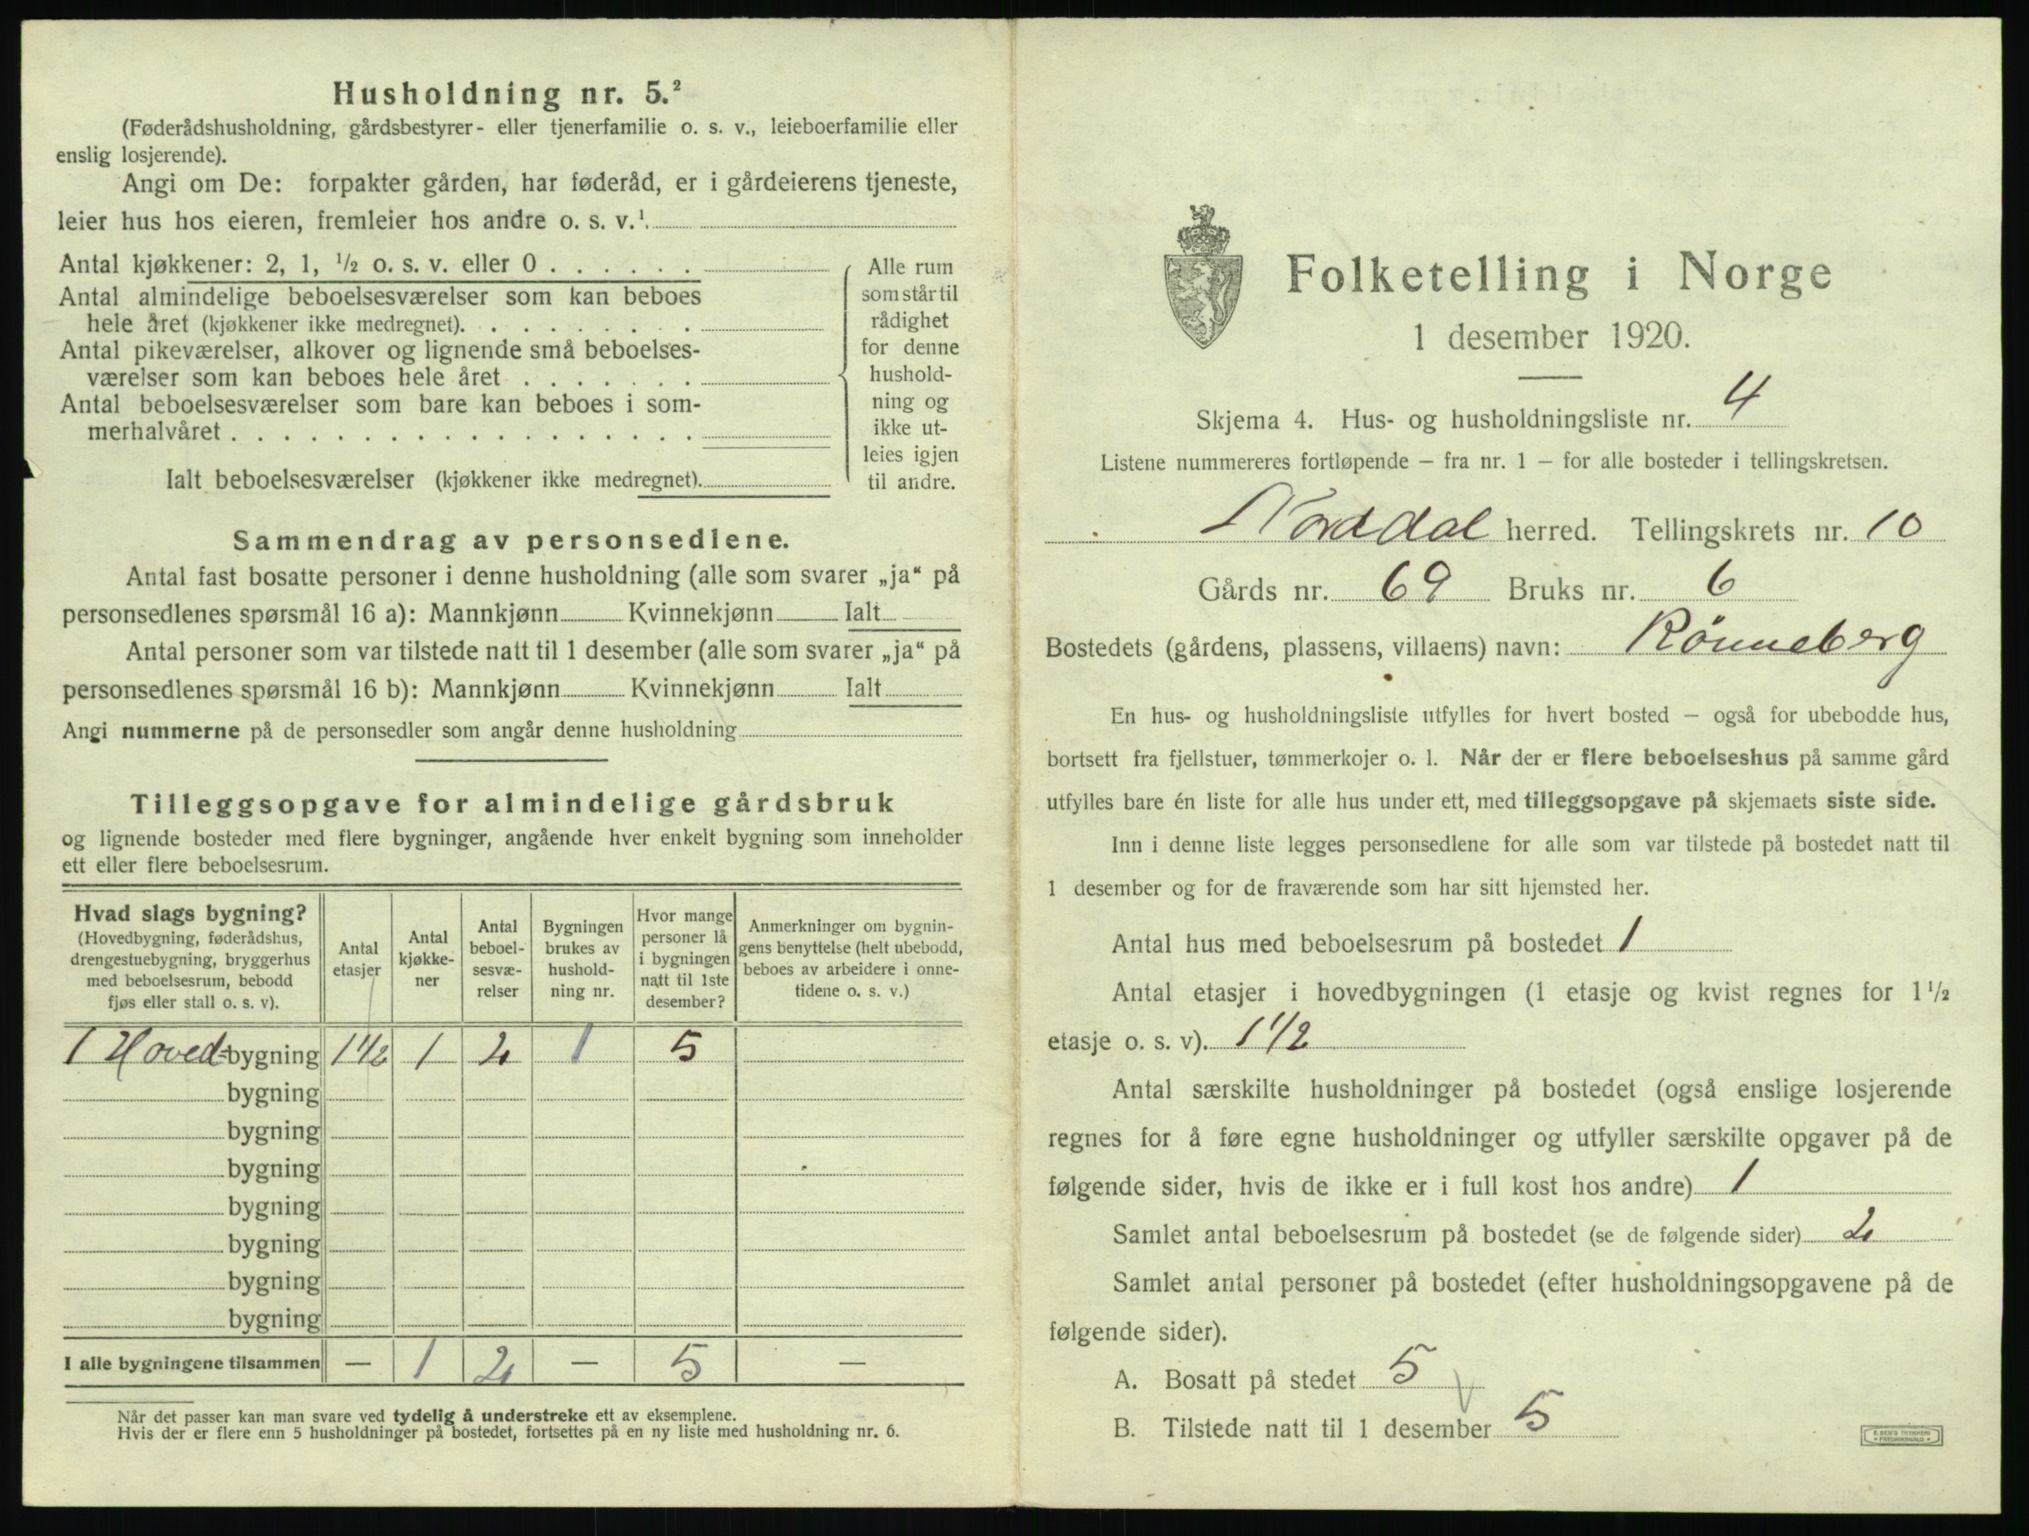 Husholdning nr. 5.²
(Føderådshusholdning, gårdsbestyrer- eller tjenerfamilie o. s. v., leieboerfamilie eller
enslig losjerende).
Angi om De: forpakter gården, har føderåd, er i gårdeierens tjeneste,
leier hus hos eieren, fremleier hos andre o. s. v.¹
Antal kjøkkener: 2, 1, ½ o. s. v. eller 0 . . . . . .
Antal almindelige beboelsesværelser som kan beboes
hele året (kjøkkener ikke medregnet). . . . . . . . .
Antal pikeværelser, alkover og lignende små beboelses-
værelser som kan beboes hele året . . . . . . .
Antal beboelsesværelser som bare kan beboes i som-
merhalvåret . . . . . . . . . . . . . . . . . .
Ialt beboelsesværelser (kjøkkener ikke medregnet).
Alle rum
som står til
rådighet
for denne
hushold-
ning og
ikke ut-
leies igjen
til andre.
Sammendrag av personsedlene.
Antal fast bosatte personer i denne husholdning (alle som svarer „ja“ på
personsedlenes spørsmål 16 a): Mannkjønn Kvinnekjønn Ialt
Antal personer som var tilstede natt til 1 desember (alle som svarer „ja“ på
personsedlenes spørsmål 16 b): Mannkjønn Kvinnekjønn Ialt
Angi nummerne på de personsedler som angår denne husholdning
Tilleggsopgave for almindelige gårdsbruk
og lignende bosteder med flere bygninger, angående hver enkelt bygning som inneholder
ett eller flere beboelsesrum.
Hvad slags bygning?
(Hovedbygning, føderådshus,
drengestuebygning, bryggerhus
med beboelsesrum, bebodd
fjøs eller stall o. s. v).
Antal
etasjer
Antal
kjøkke-
ner
Antal
beboel-
sesvæ-
relser
Bygningen
brukes av
hushold-
ning nr.
Hvor mange
personer lå
i bygningen
natt til 1ste
desember?
Anmerkninger om bygnin-
gens benyttelse (helt ubebodd,
beboes av arbeidere i onne-
tidene o. s. v.)
1 Hoved-bygning 1½ 1 2 1 5
bygning
bygning
bygning
bygning
bygning
bygning
bygning
I alle bygningene tilsammen — 1 2 — 5 —
Når det passer kan man svare ved tydelig å understreke ett av eksemplene.
Hvis der er flere enn 5 husholdninger på bostedet, fortsettes på en ny liste med husholdning nr. 6.
Folketelling i Norge
1 desember 1920.
Skjema 4. Hus- og husholdningsliste nr. 4
Listene nummereres fortløpende – fra nr. 1 – for alle bosteder i tellingskretsen.
Norddal herred. Tellingskrets nr. 10
Gårds nr. 69 Bruks nr. 6
Bostedets (gårdens, plassens, villaens) navn: Rønneberg
En hus- og husholdningsliste utfylles for hvert bosted – også for ubebodde hus,
bortsett fra fjellstuer, tømmerkojer o. l. Når der er flere beboelseshus på samme gård
utfylles bare én liste for alle hus under ett, med tilleggsopgave på skjemaets siste side.
Inn i denne liste legges personsedlene for alle som var tilstede på bostedet natt til
1 desember og for de fraværende som har sitt hjemsted her.
Antal hus med beboelsesrum på bostedet 1
Antal etasjer i hovedbygningen (1 etasje og kvist regnes for 1½
etasje o. s. v). 1½
Antal særskilte husholdninger på bostedet (også enslige losjerende
regnes for å føre egne husholdninger og utfyller særskilte opgaver på de
følgende sider, hvis de ikke er i full kost hos andre) 1
Samlet antal beboelsesrum på bostedet (se de følgende sider) 2
Samlet antal personer på bostedet (efter husholdningsopgavene på de
følgende sider).
A. Bosatt på stedet 5
B. Tilstede natt til 1 desember 5